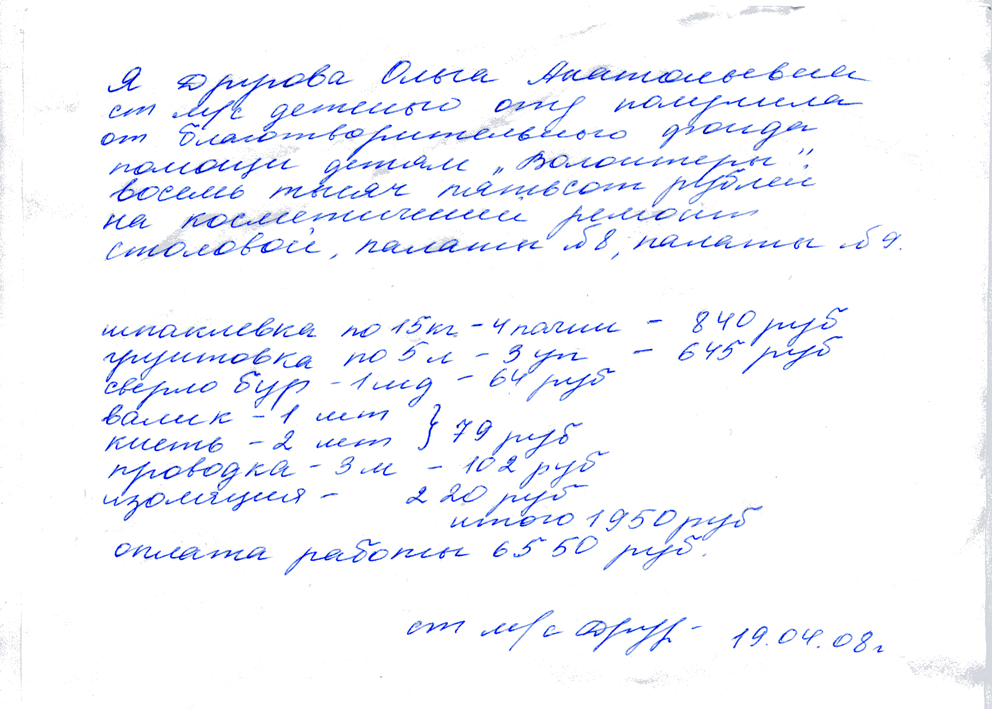 Я Друрова Ольга Анатольевна
ст м/с детского отд получила
от благотворительного фонда
помощи детям „Волонтеры".
восемь тысяч пятьсот рублей
на косметичиский ремонт
столовой, палаты №8, палаты №9.
шпаклевка по 15кг - 4 пачки - 840 руб
грунтовка по 5 л - 3 уп - 645 руб
сверло бур - 1 шт - 64 руб
валик - 1 шт
кисть - 2 шт } 79 руб
проводка - 3 м - 102 руб
изоляция - 220 руб
итого 1950 руб
оплата работы 6550 руб.
ст м/с 19.04.08г